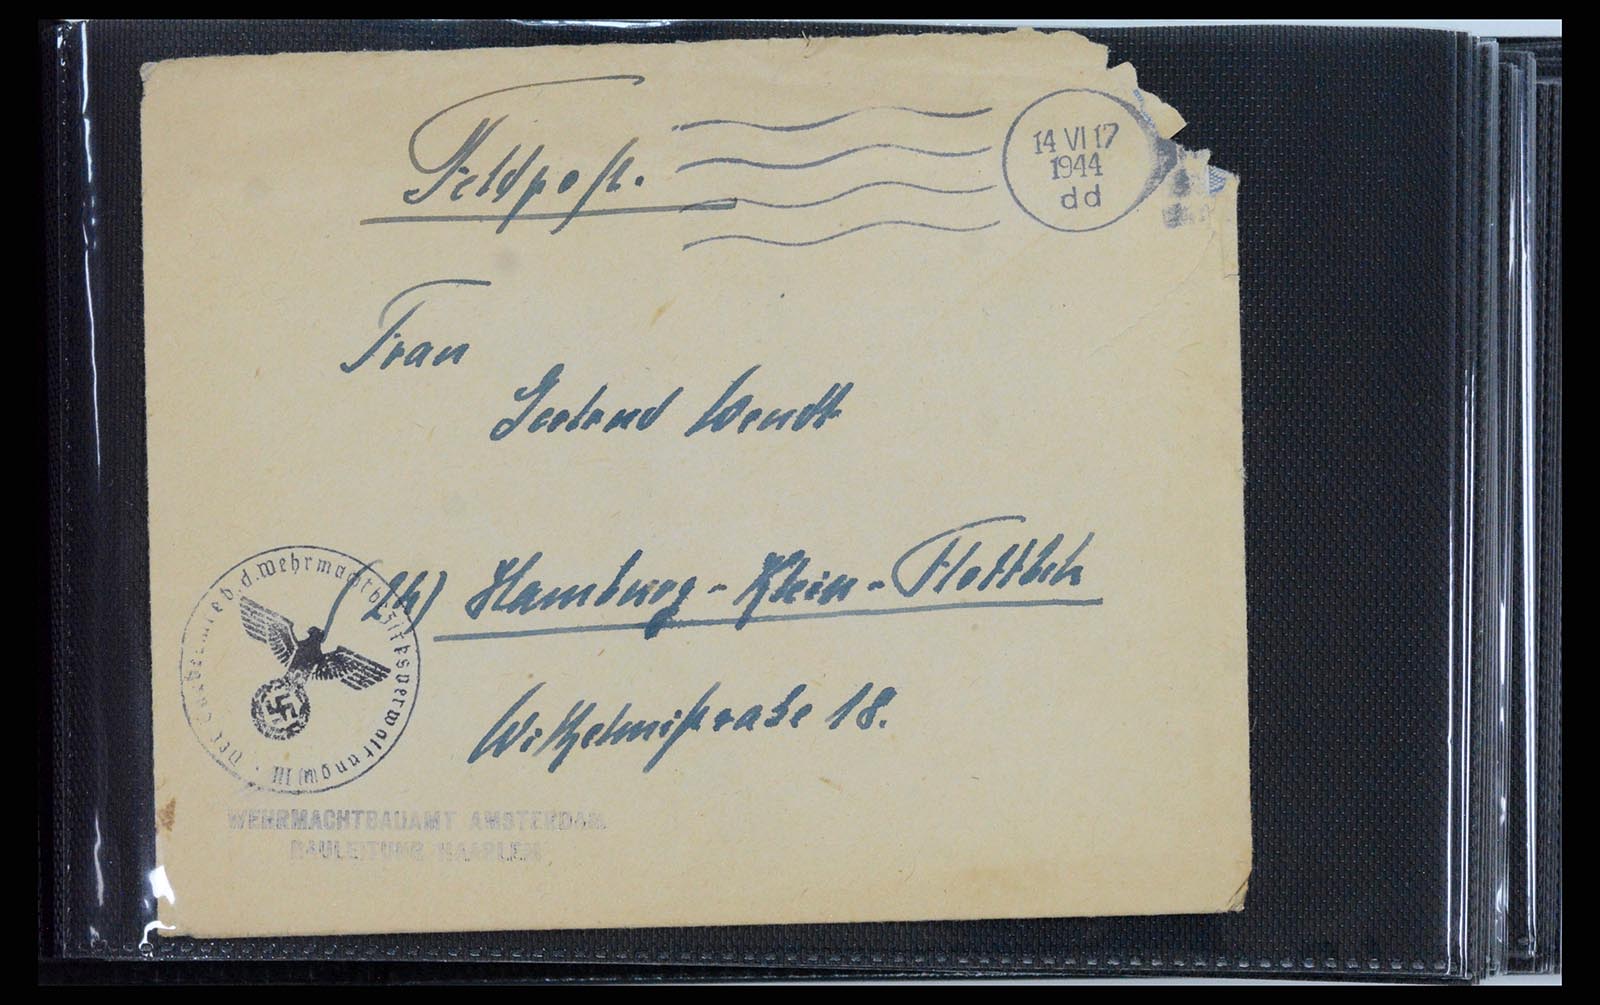 Feldpost.
14 VI 17
1944
dd
Frau
Gertrud Wendt
(24) Hamburg-Klein-Flottbek
Wilhelmistraße 18.
d. Wehrmachtbezirksverwaltung III
WEHRMACHTBAUAMT AMSTERDAM
BAULEITUNG HAARLEM